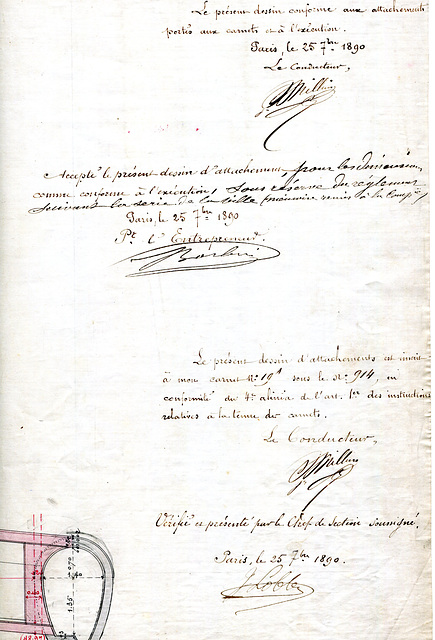 Le présent dessin conforme aux attachements
portés aux carnets et à l'exécution.
Paris, le 25 7bre 1890
Le Conducteur,
Accepté le présent dessin d'attachement, pour les dimensions,
comme conforme à l'exécution, sous réserve du règlement
suivant la série de la ville (mémoire remis à la Comp.
Paris, le 25 7bre 1890
Pr. l'Entrepreneur.
Le présent dessin d'attachements est inscrit
à mon carnet No. 19A sous le No. 914, en
conformité du 4e alinéa de l'art. 1er des instructions
relatives à la tenue des carnets.
Le Conducteur,
Vérifié et présenté par le Chef de Section soussigné.
Paris, le 25 7bre 1890.
1.35